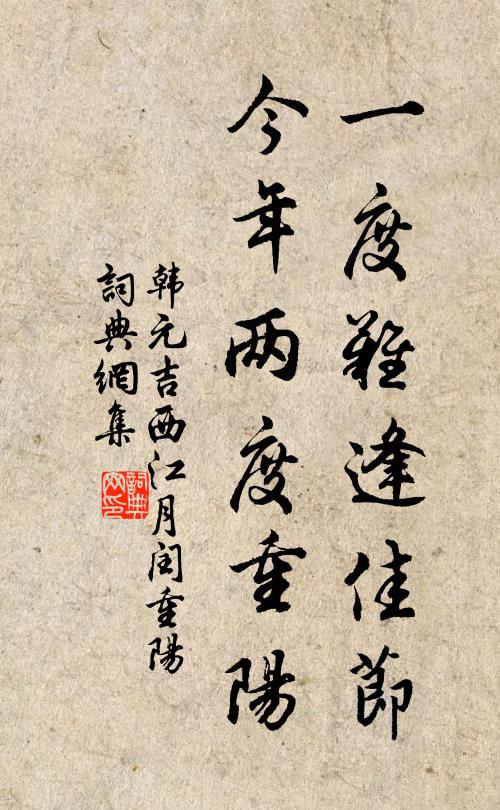 一度難逢佳節
今年两度重陽
韩元吉西江月闰重陽
詞典網集
詞典網印